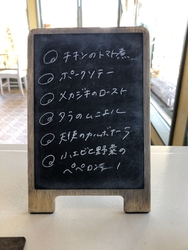 チキンのトマト煮
ポークソテー
メカジキのロースト
タラのムニエル
天使のカルボナーラ
小エビと野菜の
ペペロンチーノ